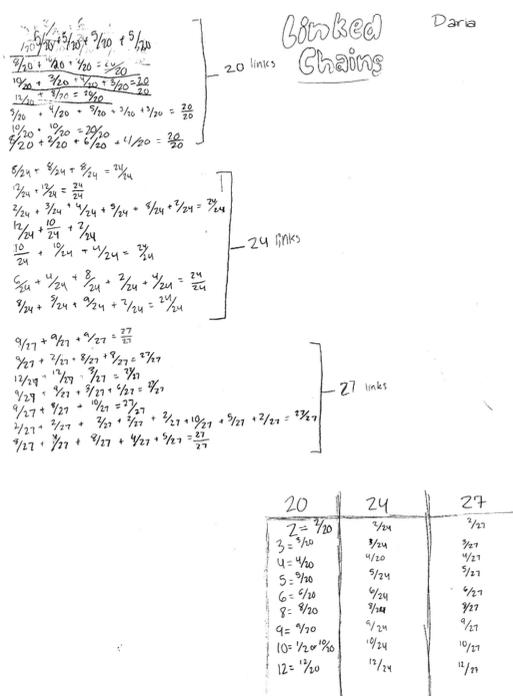 Linked Chains
Daria
5/20 + 5/20 + 5/20 + 5/20
8/20 + 4/20 + 8/20 = 20/20
10/20 + 3/20 + 4/20 + 3/20 = 20/20
12/20 + 8/20 = 20/20
5/20 + 4/20 + 5/20 + 3/20 + 3/20 = 20/20
10/20 + 10/20 = 20/20
8/20 + 2/20 + 6/20 + 4/20 = 20/20
20 links
8/24 + 8/24 + 8/24 = 24/24
12/24 + 12/24 = 24/24
2/24 + 3/24 + 4/24 + 5/24 + 8/24 + 2/24 = 24/24
12/24 + 10/24 + 2/24
10/24 + 10/24 + 4/24 = 24/24
6/24 + 4/24 + 8/24 + 2/24 + 4/24 = 24/24
8/24 + 5/24 + 9/24 + 2/24 = 24/24
24 links
9/27 + 9/27 + 9/27 = 27/27
9/27 + 2/27 + 8/27 + 8/27 = 27/27
12/27 + 12/27 + 3/27 = 27/27
9/27 + 4/27 + 8/27 + 6/27 = 27/27
9/27 + 8/27 + 10/27 = 27/27
2/27 + 2/27 + 2/27 + 2/27 + 2/27 + 10/27 + 5/27 + 2/27 = 27/27
8/27 + 2/27 + 8/27 + 4/27 + 5/27 = 27/27
27 links
20 24 27
2 = 2/20 2/24 2/27
3 = 3/20 3/24 3/27
4 = 4/20 4/20 4/27
5 = 5/20 5/24 5/27
6 = 6/20 6/24 6/27
8 = 8/20 8/24 8/27
9 = 9/20 9/24 9/27
10 = 1/2 or 10/20 10/24 10/27
12 = 12/20 12/24 12/27